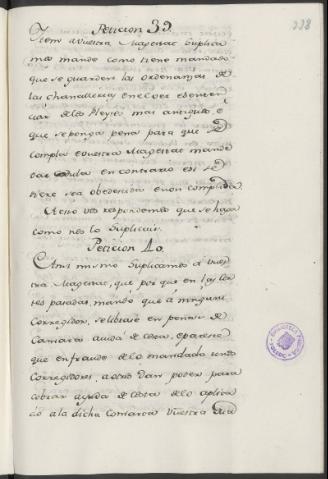 Peticion 39.
338
Yten a vuestra Magestad suplica
mos mande como tiene mandado
que se guarden las ordenanzas de
las chancillerias en el oer e senten
ciar de los Pleytos mas antiguos, e
que se ponga pena para que se
cumpla e vuestra Magestad mande
dar cedula en contrario esi se
diere sea obedecida e non complida.
A esto vos respondemos que se haga
como nos lo suplicais.
Peticion 40.
Otrosi mismo suplicamos a vues
tra Magestad, que por que en las Cor
tes pasadas, mando que a ningun
Corregidor, se librase en penas de
Camara aiuda de costa, e parece
que en fraude de lo mandado un
corregidores a otro dan poder para
cobrar ayuda de costa de lo aplica
do a la dicha Camara vuestra
BIBLIOTECA
TOLEDO